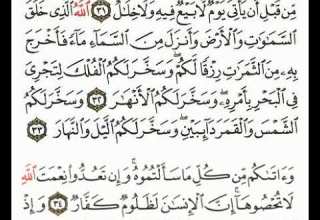 مِّن قَبْلِ أَن يَأْتِىَ يَوْمٌ لَّا بَيْعٌ فِيهِ وَلَا خِلَـٰلٌ ٣١ ٱللَّهُ ٱلَّذِى خَلَقَ
ٱلسَّمَـٰوَٰتِ وَٱلْأَرْضَ وَأَنزَلَ مِنَ ٱلسَّمَآءِ مَآءً فَأَخْرَجَ
بِهِۦ مِنَ ٱلثَّمَرَٰتِ رِزْقًا لَّكُمْ ۖ وَسَخَّرَ لَكُمُ ٱلْفُلْكَ لِتَجْرِىَ
فِى ٱلْبَحْرِ بِأَمْرِهِۦ ۖ وَسَخَّرَ لَكُمُ ٱلْأَنْهَـٰرَ ٣٢ وَسَخَّرَ لَكُمُ
ٱلشَّمْسَ وَٱلْقَمَرَ دَآئِبَيْنِ ۖ وَسَخَّرَ لَكُمُ ٱلَّيْلَ وَٱلنَّهَارَ ٣٣
وَءَاتَىٰكُم مِّن كُلِّ مَا سَأَلْتُمُوهُ ۚ وَإِن تَعُدُّوا۟ نِعْمَتَ ٱللَّهِ
لَا تُحْصُوهَآ ۗ إِنَّ ٱلْإِنسَـٰنَ لَظَلُومٌ كَفَّارٌ ٣٤ وَإِذْ